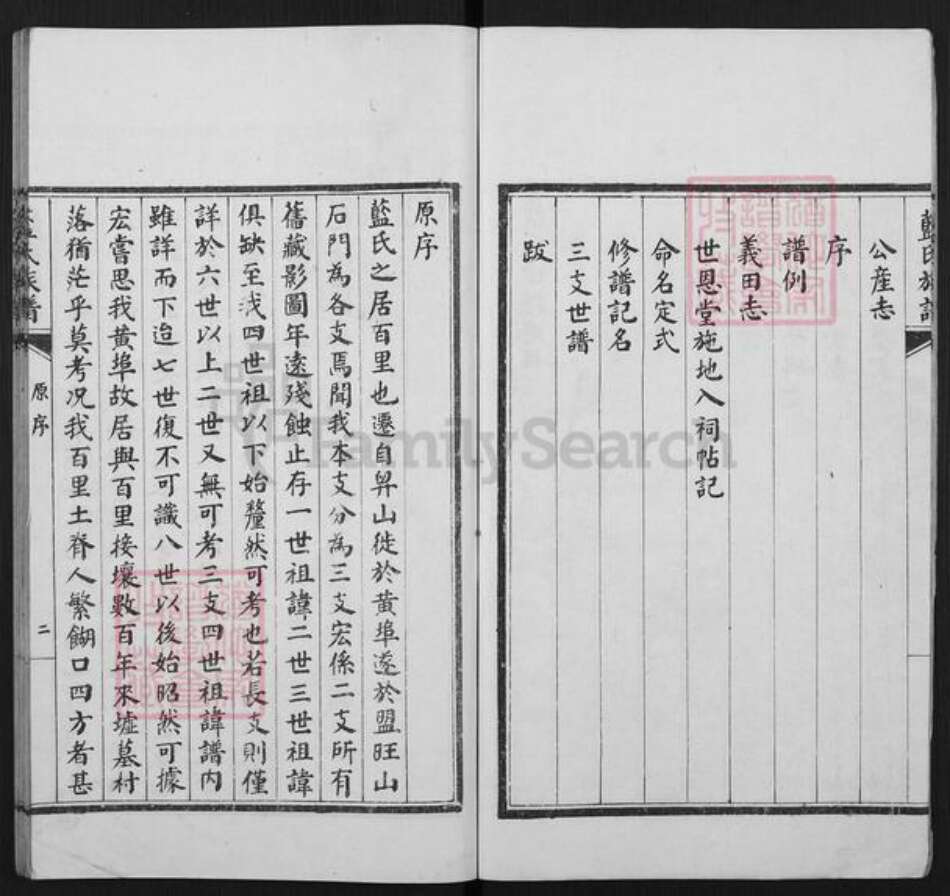 公産志
序
譜例
義田志
世恩堂施地入祠帖記
命名定式
修譜記名
三支世譜
跋
原序
藍氏之居百里也遷自昇山徙於黄埠遂於盟旺山
石門為各支焉聞我本支分為三支宏係二支所有
舊藏影圖年遠殘蝕止存一世祖諱二世三世祖諱
俱缺至我四世祖以下始釐然可考也若長支則僅
詳於六世以上二世又無可考三支四世祖諱譜内
雖詳而下迨七世復不可識八世以後始昭然可據
宏嘗思我黄埠故居與百里接壤數百年來墟墓村
落猶茫乎莫考况我百里土脊人繁餬口四方者甚
原序
二
FamilySearch